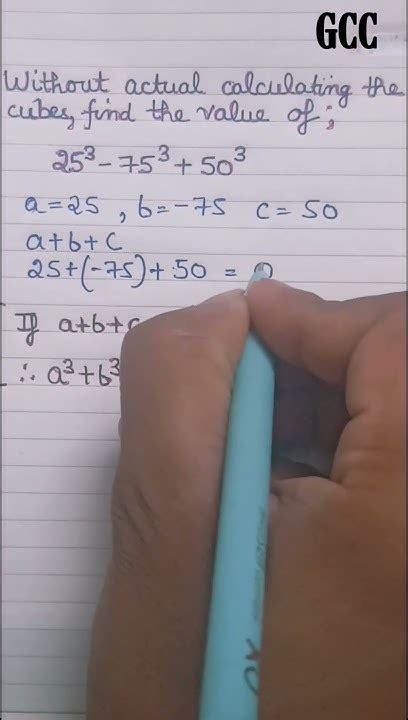 GCC
Without actual calculating the
cubes, find the value of;
25³ - 75³ + 50³
a = 25 , b = -75 c = 50
a + b + c
25 + (-75) + 50 = 0
If a + b + c
∴ a³ + b³